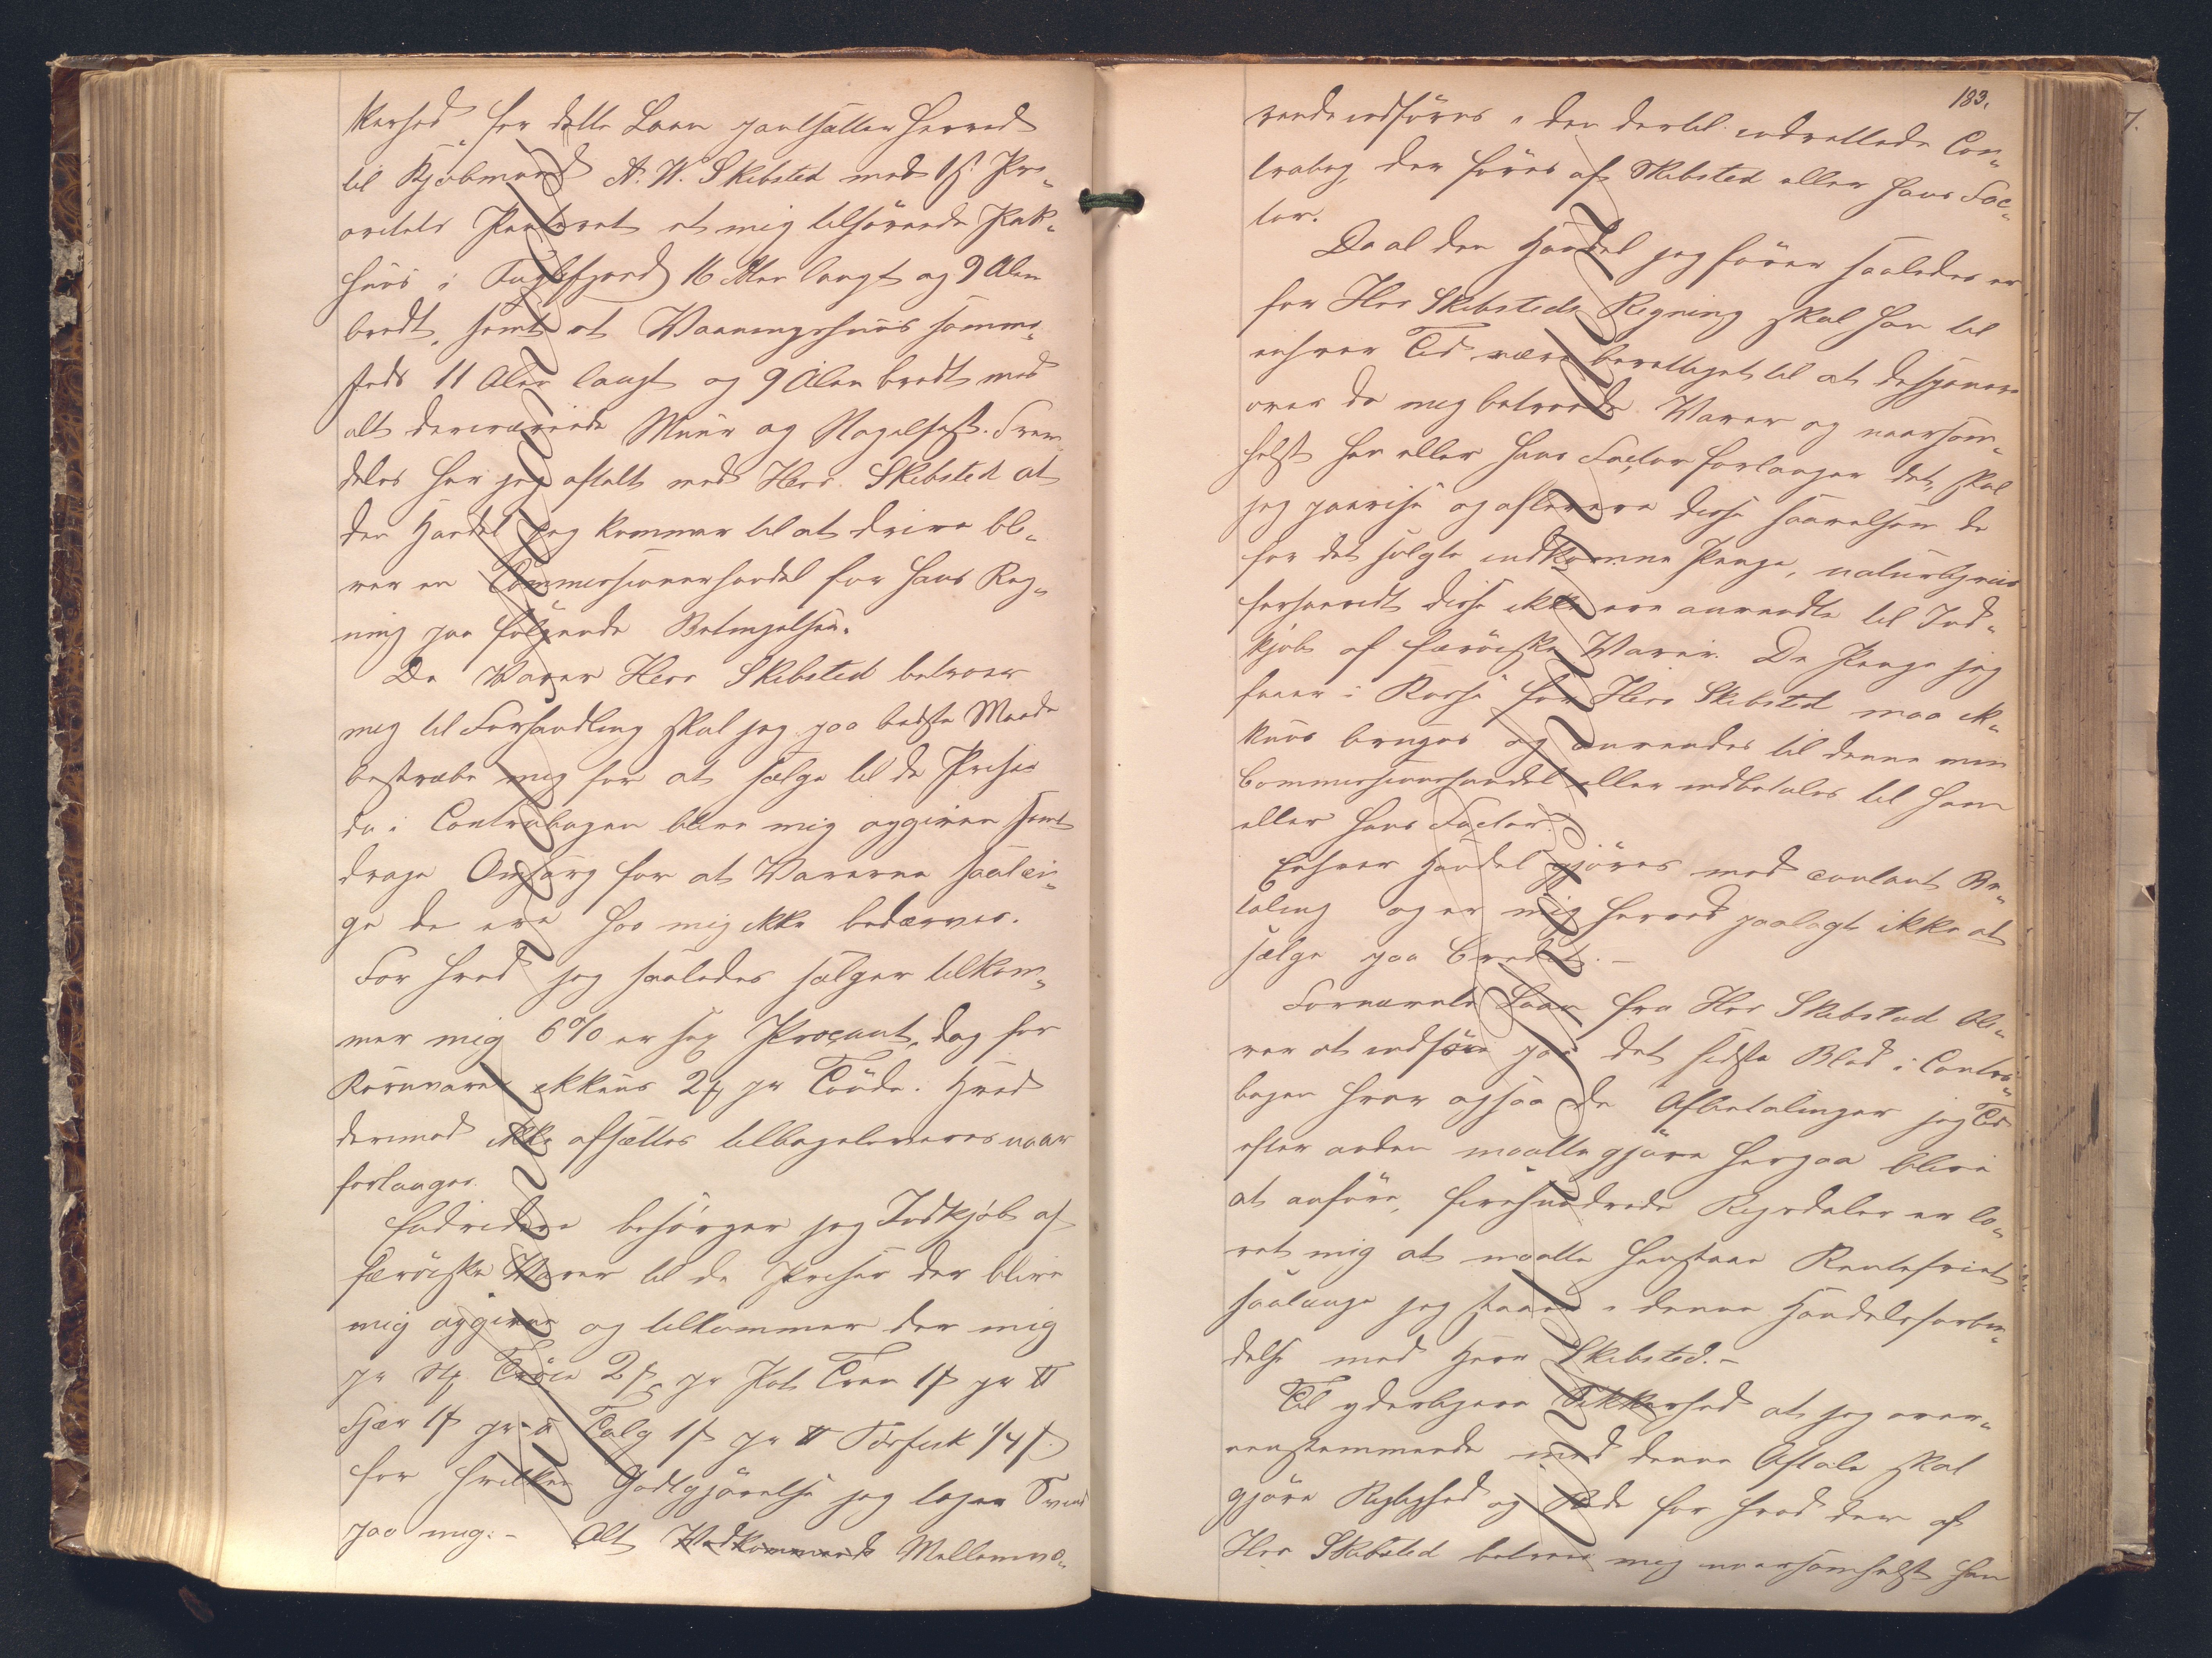 kerhed for dette Laan pantsætter herved
til Kjøbmand A. W. Skibsted med 1ste Pri-
oritets Panteret et mig tilhørende Pak-
huus i Fuglefjord 16 Alen langt og 9 Alen
bredt, samt et Vaaningshuus samme-
steds 11 Alen langt og 9 Alen bredt med
alt derværende Muur og Nagelfast. Frem-
deles har jeg aftalt med Herr Skibsted at
den Handel jeg kommer til at drive bli-
ver en Commissionærhandel for hans Reg-
ning paa følgende Betingelser.
De Varer Herr Skibsted betroer
mig til Forhandling skal jeg paa bedste Maade
bestræbe mig for at sælge til de Priser
de i Contrabogen blive mig opgivne samt
drage Omsorg for at Varerne saalæn-
ge de ere hos mig ikke bedærves.
For hvad jeg saaledes sælger tilkom-
mer mig 6% er sex Procent, dog for
Kornvarer ikkuns 2 ℳ pr Tønde. Hvad
derimod ikke afsættes tilbageleveres naar
forlanges.
Endvidere besørger jeg Indkjøb af
færøiske Varer til de Priser der blive
mig opgivne og tilkommer der mig
pr Stk. Trøie 2 ß, pr Pot Tran 1 ß pr ℔
Fjær 1 ß pr ℔ Talg 1 ß pr ℔ Tørfisk 1/4 ß.
for hvilken Godtgjørelse jeg tager Svind
paa mig. - Alt Vedkommende Mellemvæ-
183.
rende indføres i den dertil indrettede Con-
trabog, der føres af Skibsted eller hans Fac-
tor.
Da al den Handel jeg fører saaledes er
for Herr Skibsteds Regning skal han til
enhver Tid være berettiget til at disponere
over de mig betroede Varer og naarsom-
helst han eller hans Factor forlanger det, skal
jeg paavise og aflevere disse saavelsom de
for det solgte indkomne Penge, naturligviis
forsaavidt disse ikke ere anvendte til Ind-
kjøb af færøiske Varer. De Penge jeg
faaer i Kasse for Herr Skibsted maa ik-
kuns bruges og anvendes til denne min
Commissionshandel eller indbetales til ham
eller hans Factor.
Enhver Handel gjøres mod contant Be-
taling og er mig herved paalagt ikke at
sælge paa Credit. -
Fornævnte Laan fra Herr Skibsted bli-
ver at indføre paa det sidste Blad i Contra-
bogen hvor ogsaa de Afbetalinger jeg Tid
efter anden maatte gjøre herpaa blive
at anføre, firehundrede Rigsdaler er lo-
vet mig at maatte henstaae Rentefriet
saalænge jeg staaer i denne Handelsforbin-
delse med Herr Skibsted. -
Til yderligere Sikkerhed at jeg over-
eensstemmende med denne Aftale skal
gjøre Rigtighed og Rede for hvad der af
Herr Skibsted betroes mig naarsomhelst han